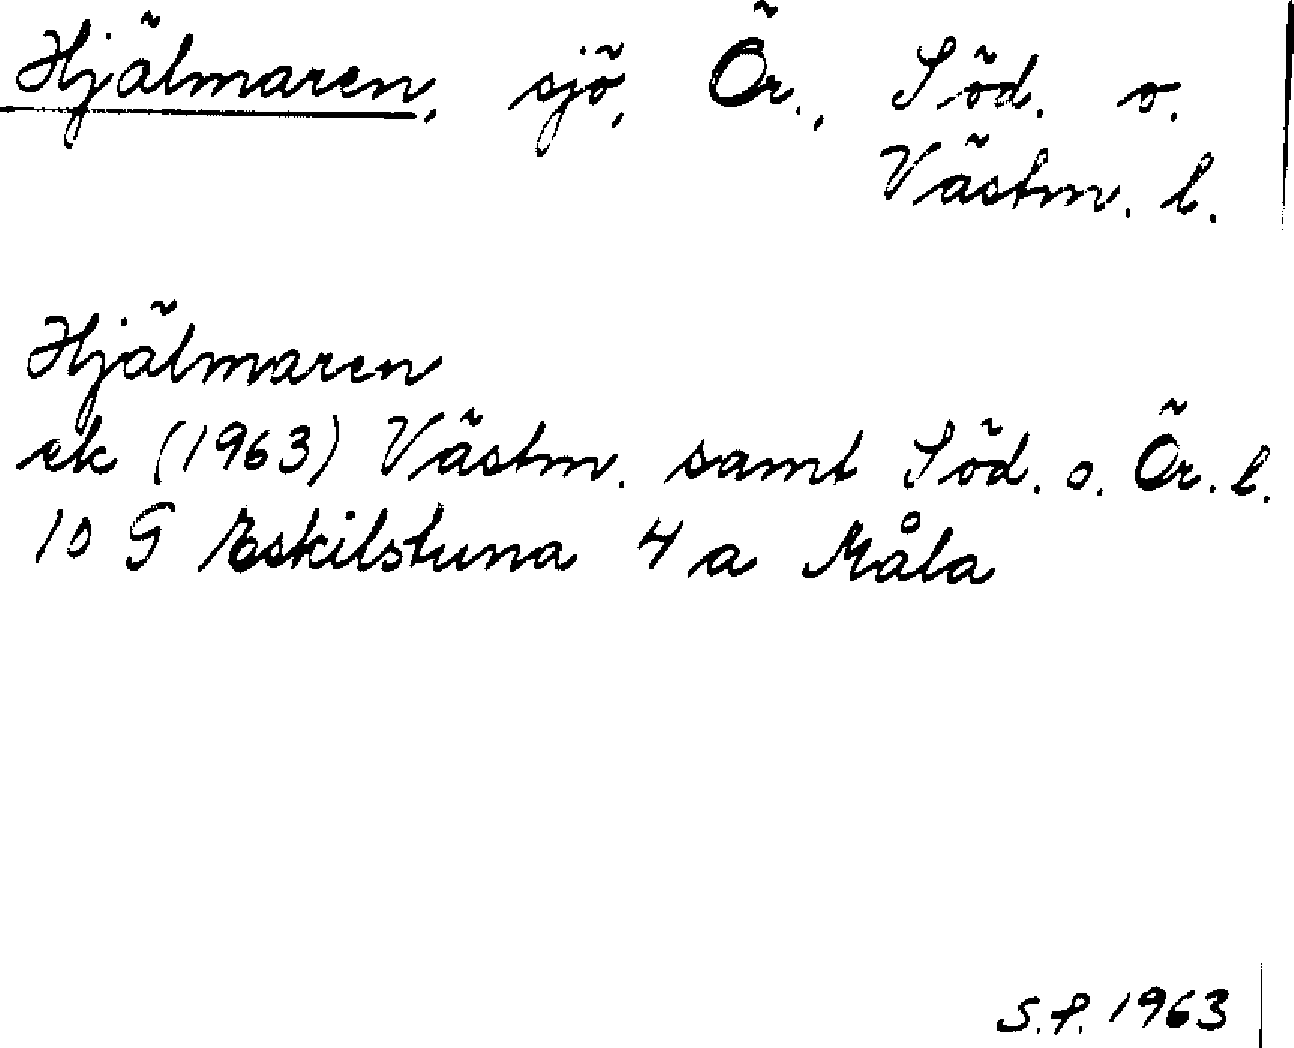 Hjälmaren, sjö, Ör., Söd. o.
Västm. l.
Hjälmaren
ek (1963) Västm. samt Söd. o. Ör. l.
10 G Eskilstuna 4 a Måla
S.P. 1963